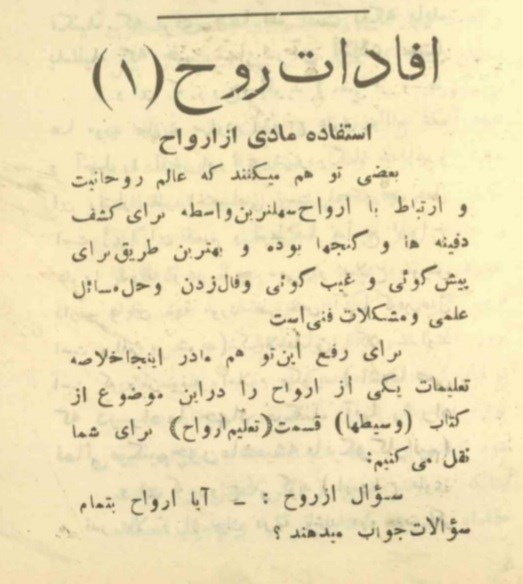 افادات روح (۱)
استفاده مادی از ارواح
بعضی تو هم میکنند که عالم روحانیت
و ارتباط با ارواح سهلترین واسطه برای کشف
دفینه ها و گنجها بوده و بهترین طریق برای
پیش گوئی و غیب گوئی و فال زدن و حل مسائل
علمی و مشکلات فنی است
برای رفع این تو هم مادر اینجا خلاصه
تعلیمات یکی از ارواح را در این موضوع از
کتاب (وسیطها) قسمت (تعلیم ارواح) برای شما
نقل می کنیم:
سؤال از روح : ـ آیا ارواح بتمام
سؤالات جواب میدهند ؟